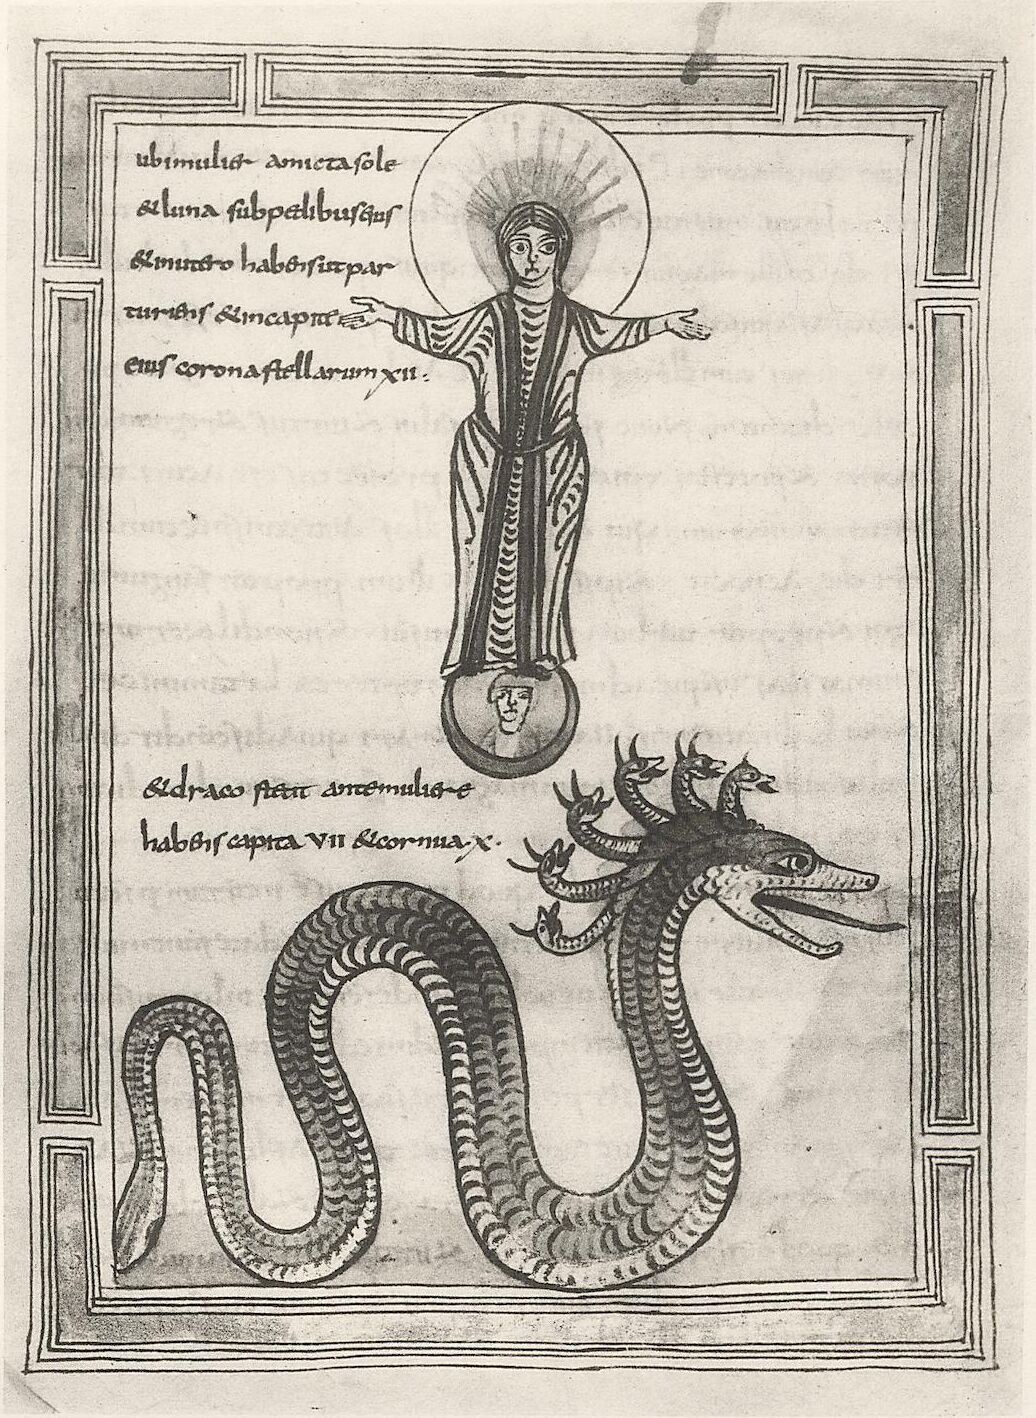 ubi mulier amicta sole
& luna sub pedibus eius
& in utero habens ut par
turiens & in capite
eius corona stellarum XII:
& draco stetit ante muliere
habens capita VII & cornua · X ·